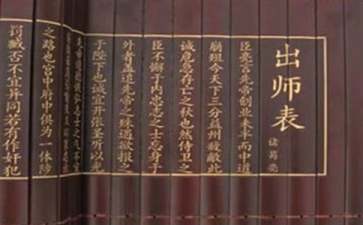 出师表
诸葛亮
臣亮言先帝创业未半而中道
崩殂今天下三分益州疲敝此
诚危急存亡之秋也然侍卫之
臣不懈于内忠志之士忘身于
外者盖追先帝之殊遇欲报之
于陛下也诚宜开张圣听以光
先帝遗德恢弘志士之气不宜
之路也宫中府中俱为一体陟
罚臧否不宜异同若有作奸犯